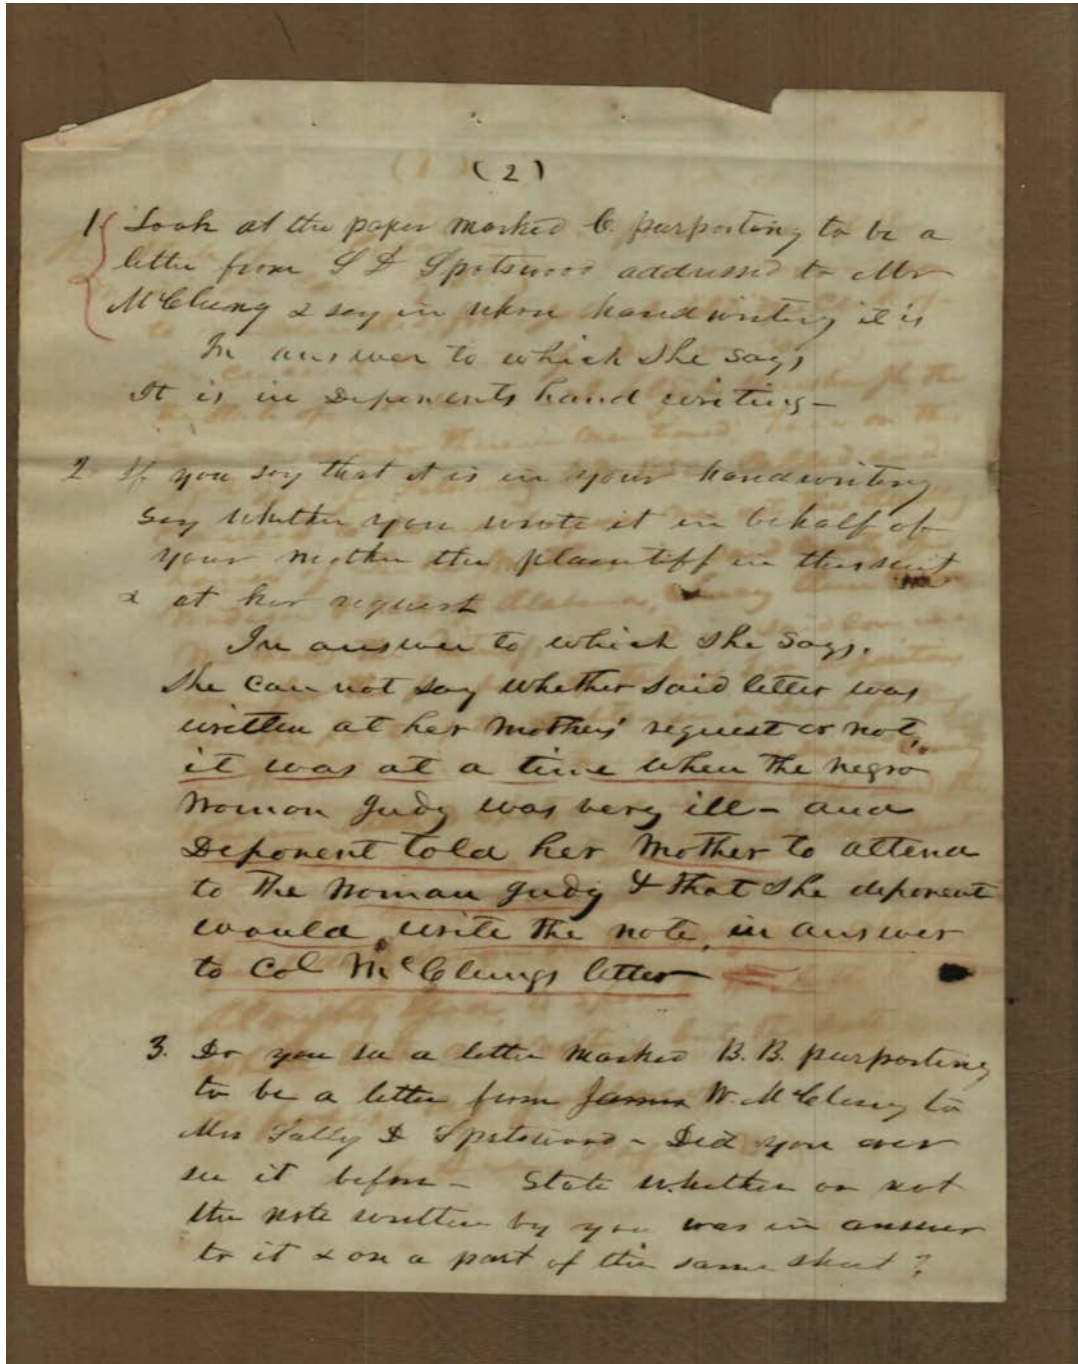 (2)
1 Look at the paper marked C. purporting to be a
letter from S D Spotswood addressed to Mr
McClung & say in whose handwriting it is
In answer to which she says
It is in Deponents hand writing -
2 If you say that it is in your handwriting
say whether you wrote it in behalf of
your mother the plaintiff in this suit
& at her request
In answer to which she says.
She can not say whether said letter was
written at her mothers' request or not,
it was at a time when the negro
woman Judy was very ill - and
Deponent told her mother to attend
to the woman Judy & that she deponent
would write the note, in answer
to Col McClungs letter
3. Do you see a letter marked B. B. purporting
to be a letter from James W. McClung to
Mrs Sally D Spotswood - Did you ever
see it before - State whether or not
the note written by you was in answer
to it & on a part of the same sheet?